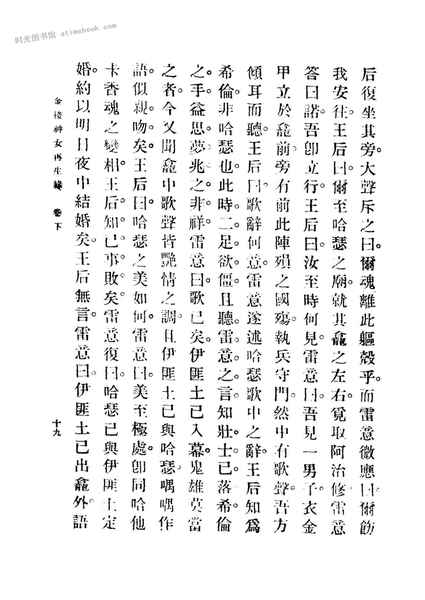 时光图书馆 atimebook.com
后復坐其旁。大聲斥之曰。爾魂離此軀殼乎。而雷意微應曰。爾飭
我安往。王后曰。爾至哈瑟之廟。就其龕之左右。覓取阿治修。雷意
答曰。諾。吾卽立行。王后曰。汝至時何見。雷意曰。吾見一男子。衣金
甲立於龕前。旁有前此陣殞之國殤。執兵守門。然中有歌聲。吾方
傾耳而聽。王后曰。歌辭何意。雷意遂述哈瑟歌中之辭。王后知爲
希倫。非哈瑟也。此時二足欲僵。且聽雷意之言。知壯士已落希倫
之手。益思夢兆之非祥。雷意曰。歌已矣。伊匪土已入幕。鬼雄莫當
之者。今又聞龕中歌聲。皆艷情之調。且伊匪土已與哈瑟喁喁作
語。似親吻矣。王后曰。哈瑟之美如何。雷意曰。美至極處。卽同哈他
卡香魂之變相。王后知已事敗矣。雷意復曰。哈瑟已與伊匪土定
婚約。以明日夜中結婚矣。王后無言。雷意曰。伊匪土已出龕外。語
金梭神女再生緣 卷下
十九